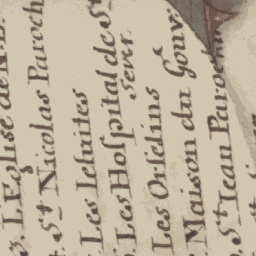 3. L'Eglise de N.D.
. St. Nicolas Paroch
. Les Iesuites
. Les Hospital de St.
Sever
. Les Orselins
. Maison du Gouv.
. St. Iean Paroch